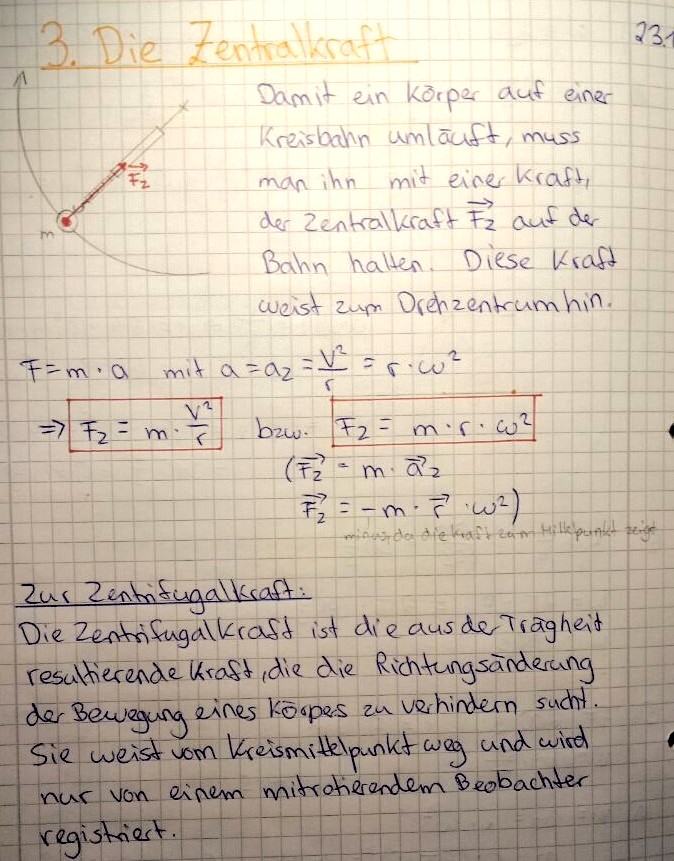 3. Die Zentralkraft
23.1
Damit ein Körper auf einer
Kreisbahn umläuft, muss
man ihn mit einer Kraft,
der Zentralkraft F⃗z auf der
Bahn halten. Diese Kraft
weist zum Drehzentrum hin.
F⃗z
m
F = m · a mit a = az = V²/r = r · ω²
⇒ Fz = m · V²/r bzw. Fz = m · r · ω²
(F⃗z = m · a⃗z
F⃗z = -m · r⃗ · ω²)
minus, da die Kraft zum Mittelpunkt zeigt
Zur Zentrifugalkraft:
Die Zentrifugalkraft ist die aus der Trägheit
resultierende Kraft, die die Richtungsänderung
der Bewegung eines Körpes zu verhindern sucht.
Sie weist vom Kreismittelpunkt weg und wird
nur von einem mitrotierendem Beobachter
registriert.